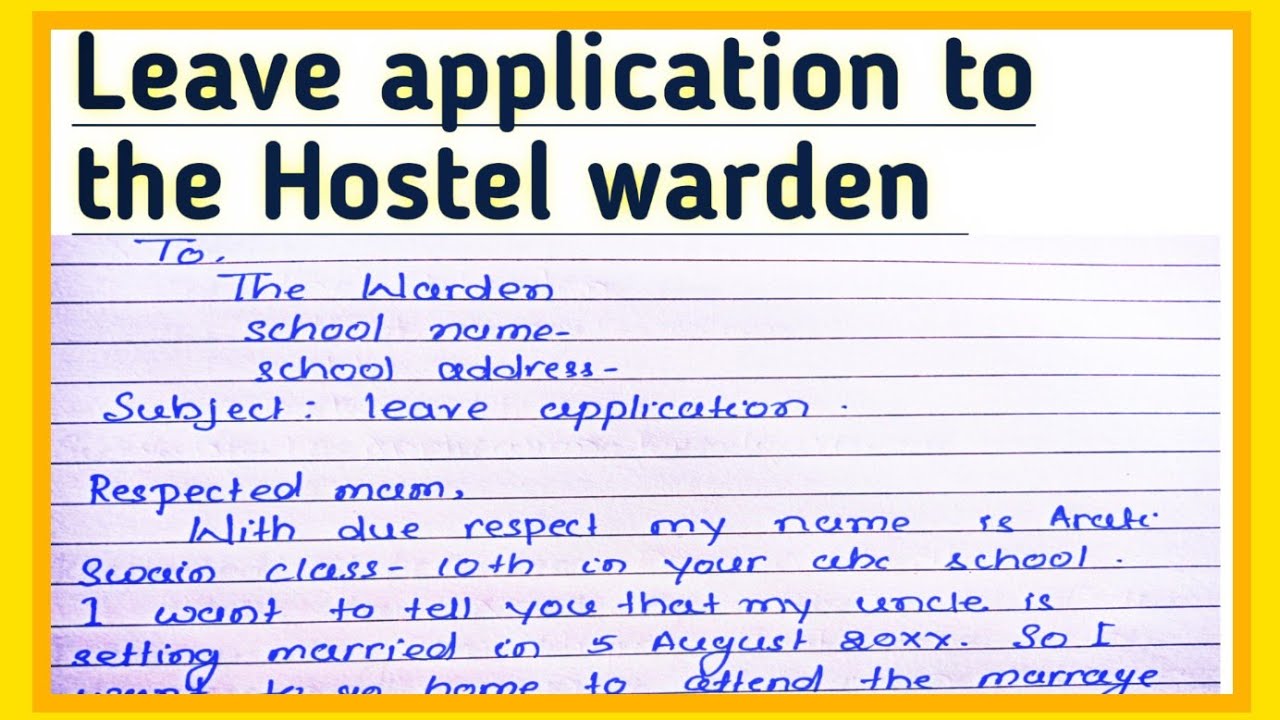 Leave application to
the Hostel warden
To,
The Warden
school name-
school address-
Subject- leave application.
Respected mam,
With due respect my name is Arati
Swain class-10th in your abc school.
I want to tell you that my uncle is
setting married in 5 August 20xx. So I
want to go home to attend the marraye